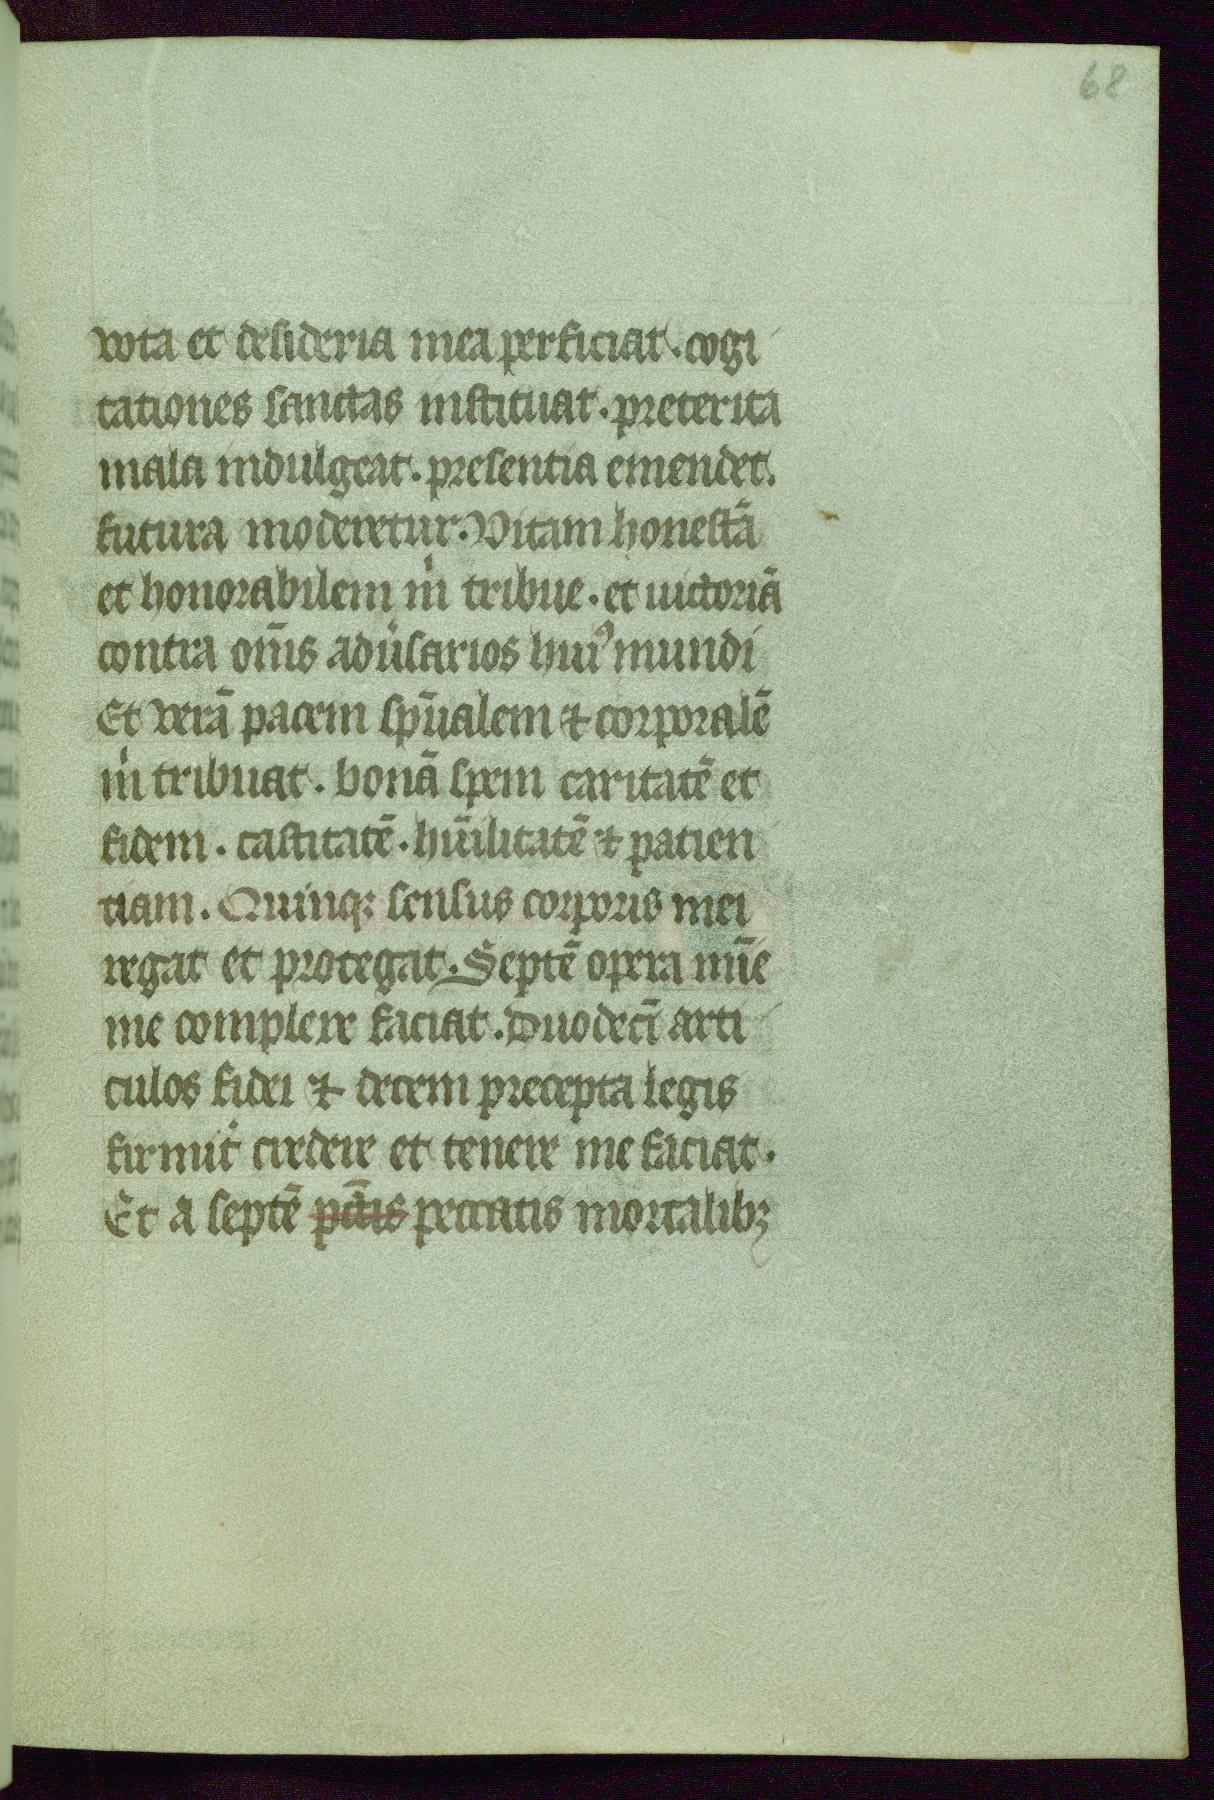 68
vota et desideria mea perficiat. cogi
tationes sanctas instituat. preterita
mala indulgeat. presentia emendet.
futura moderetur. Vitam honestā
et honorabilem m̍ tribue. et uictoriā
contra om̄s adūsarios hui᾽ mundi
Et verā pacem sp̄ualem ⁊ corporalē
m̍ tribuat. bonā spem caritatē et
fidem. castitatē. hūilitatē ⁊ patien
tiam. Quinqꝫ sensus corporis mei
regat et protegat. Septē opera mīe
me complere faciat. Duodecī arti
culos fidei ⁊ decem precepta legis
firmit᾽ credere et tenere me faciat.
Et a septē pc̄tis peccatis mortalibꝫ